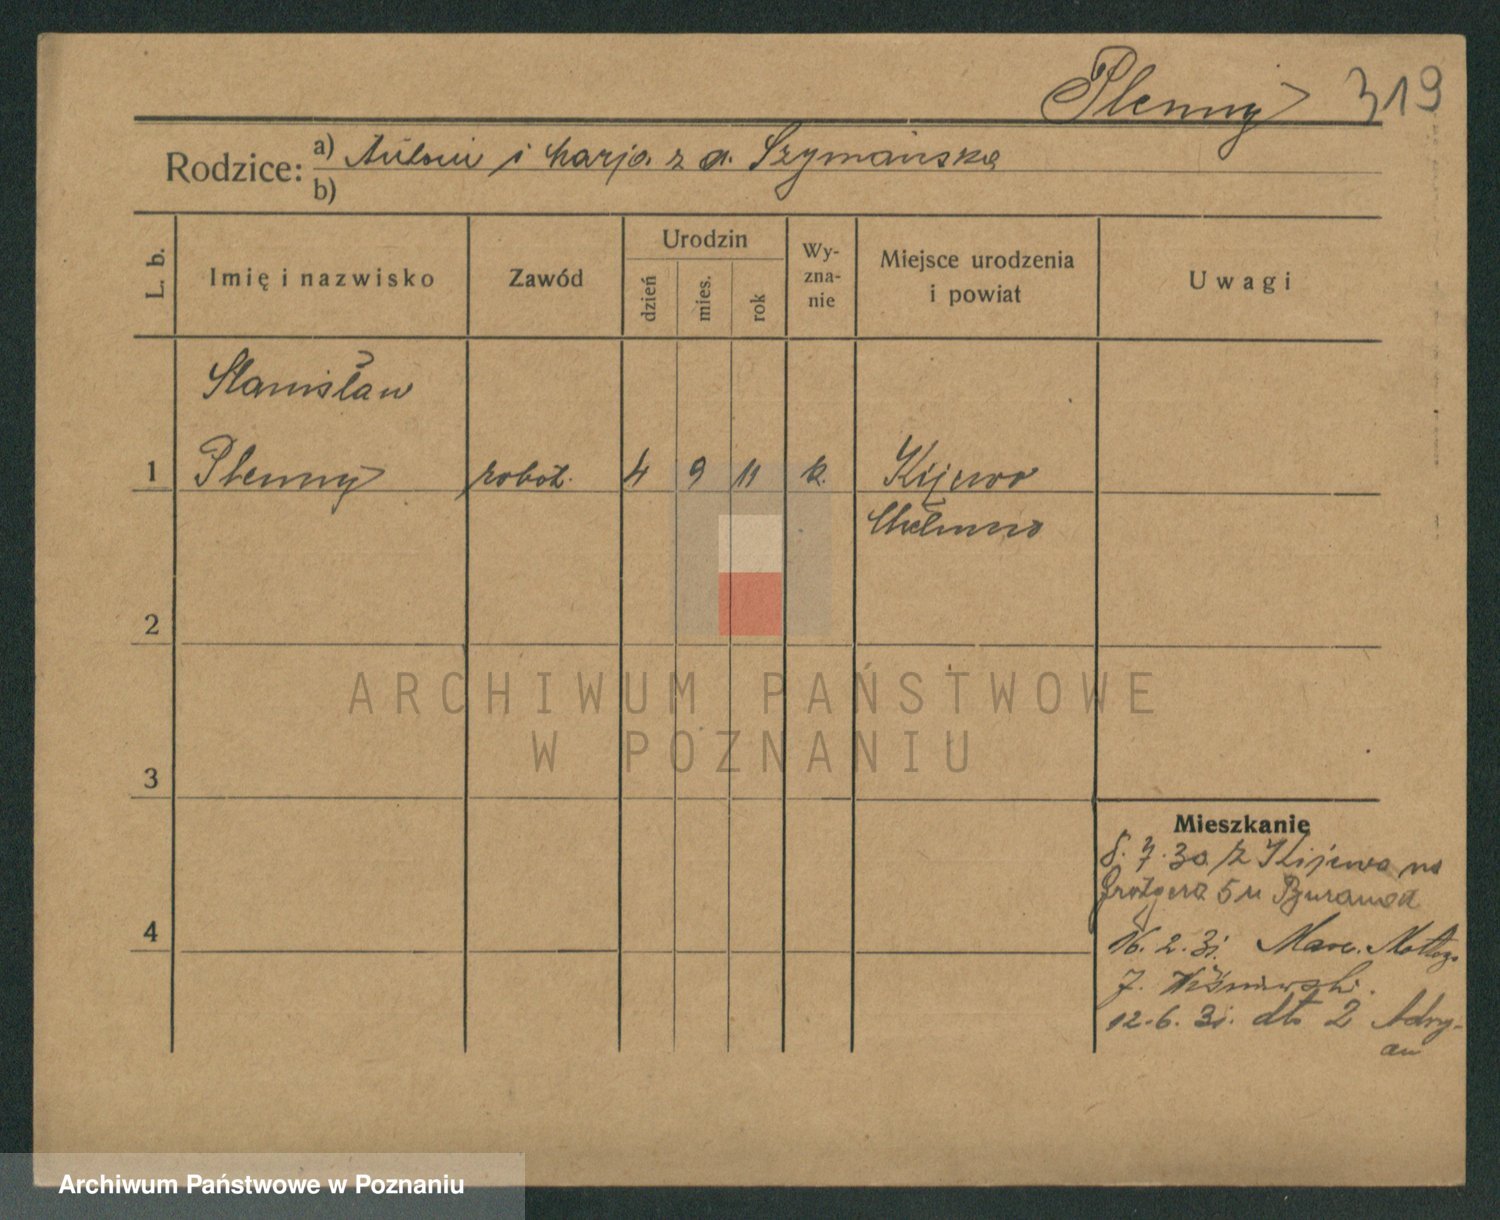 Plenny 319
Rodzice: a) Antoni i Marja z d. Szymańska
b)
L. b.
Imię i nazwisko
Zawód
Urodzin
dzień
mies.
rok
Wy-
zna-
nie
Miejsce urodzenia
i powiat
Uwagi
Stanisław
1 Plenny robot. 4 9 11 k. Kijewo
Chełmno
2
3
4
ARCHIWUM PAŃSTWOWE
W POZNANIU
Mieszkanie
8. 7. 30 z Kijewa na
Grotgera 5 u
16. 2. 31. Marc. Mottego
7. Wiśniewski.
12. 6. 31. dto 2 Adry-
an
Archiwum Państwowe w Poznaniu